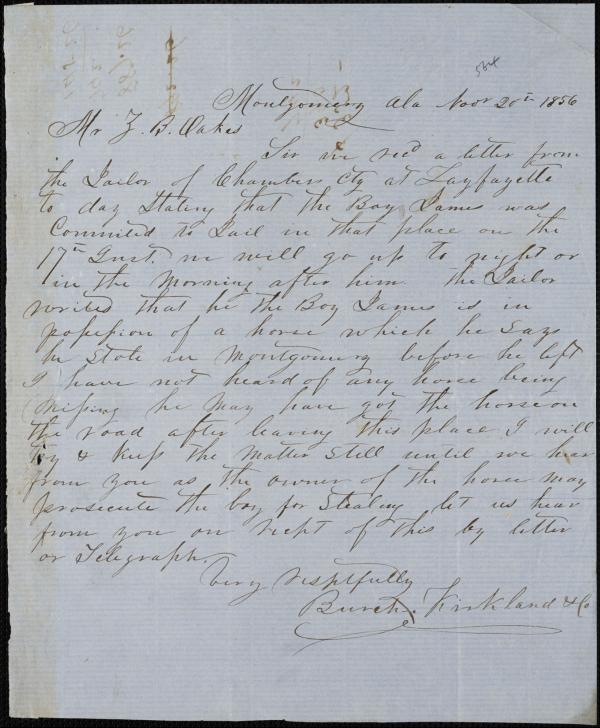 564
Montgomery Ala Novr 20th 1856
Mr Z. B. Oakes
Sir we recd a letter from
the Jailor of Chambers Cty at Layfayette
to day Stating that the Boy James was
Commited to Jail in that place on the
17th Inst. we will go up to night or
in the morning after him the Jailor
writes that he the Boy James is in
possession of a horse which he Says
he Stole in Montgomery before he left
I have not heard of any horse being
missing he may have got the horse on
the road after leaving this place I will
try & keep the matter Still until we hear
from you as the owner of the horse may
prosecute the boy for Stealing let us hear
from you on recpt of this by letter
or Telegraph.
Very resptfully
Burch, Kirkland & Co